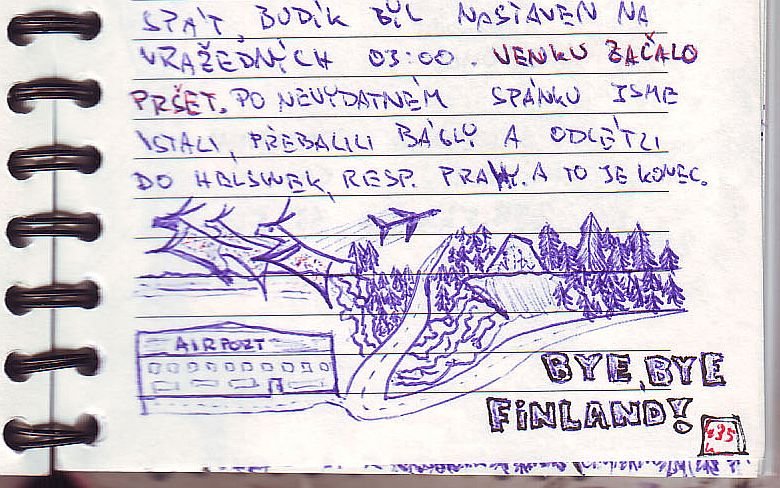 SPÁT, BUDÍK BYL NASTAVEN NA
VRAŽEDNÝCH 03:00. VENKU ZAČALO
PRŠET. PO NEVYDATNÉM SPÁNKU JSME
VSTALI, PŘEBALILI BÁGLY A ODLÉTLI
DO HELSINEK, RESP. PRAHY. A TO JE KONEC.
AIRPORT
BYE, BYE
FINLAND!